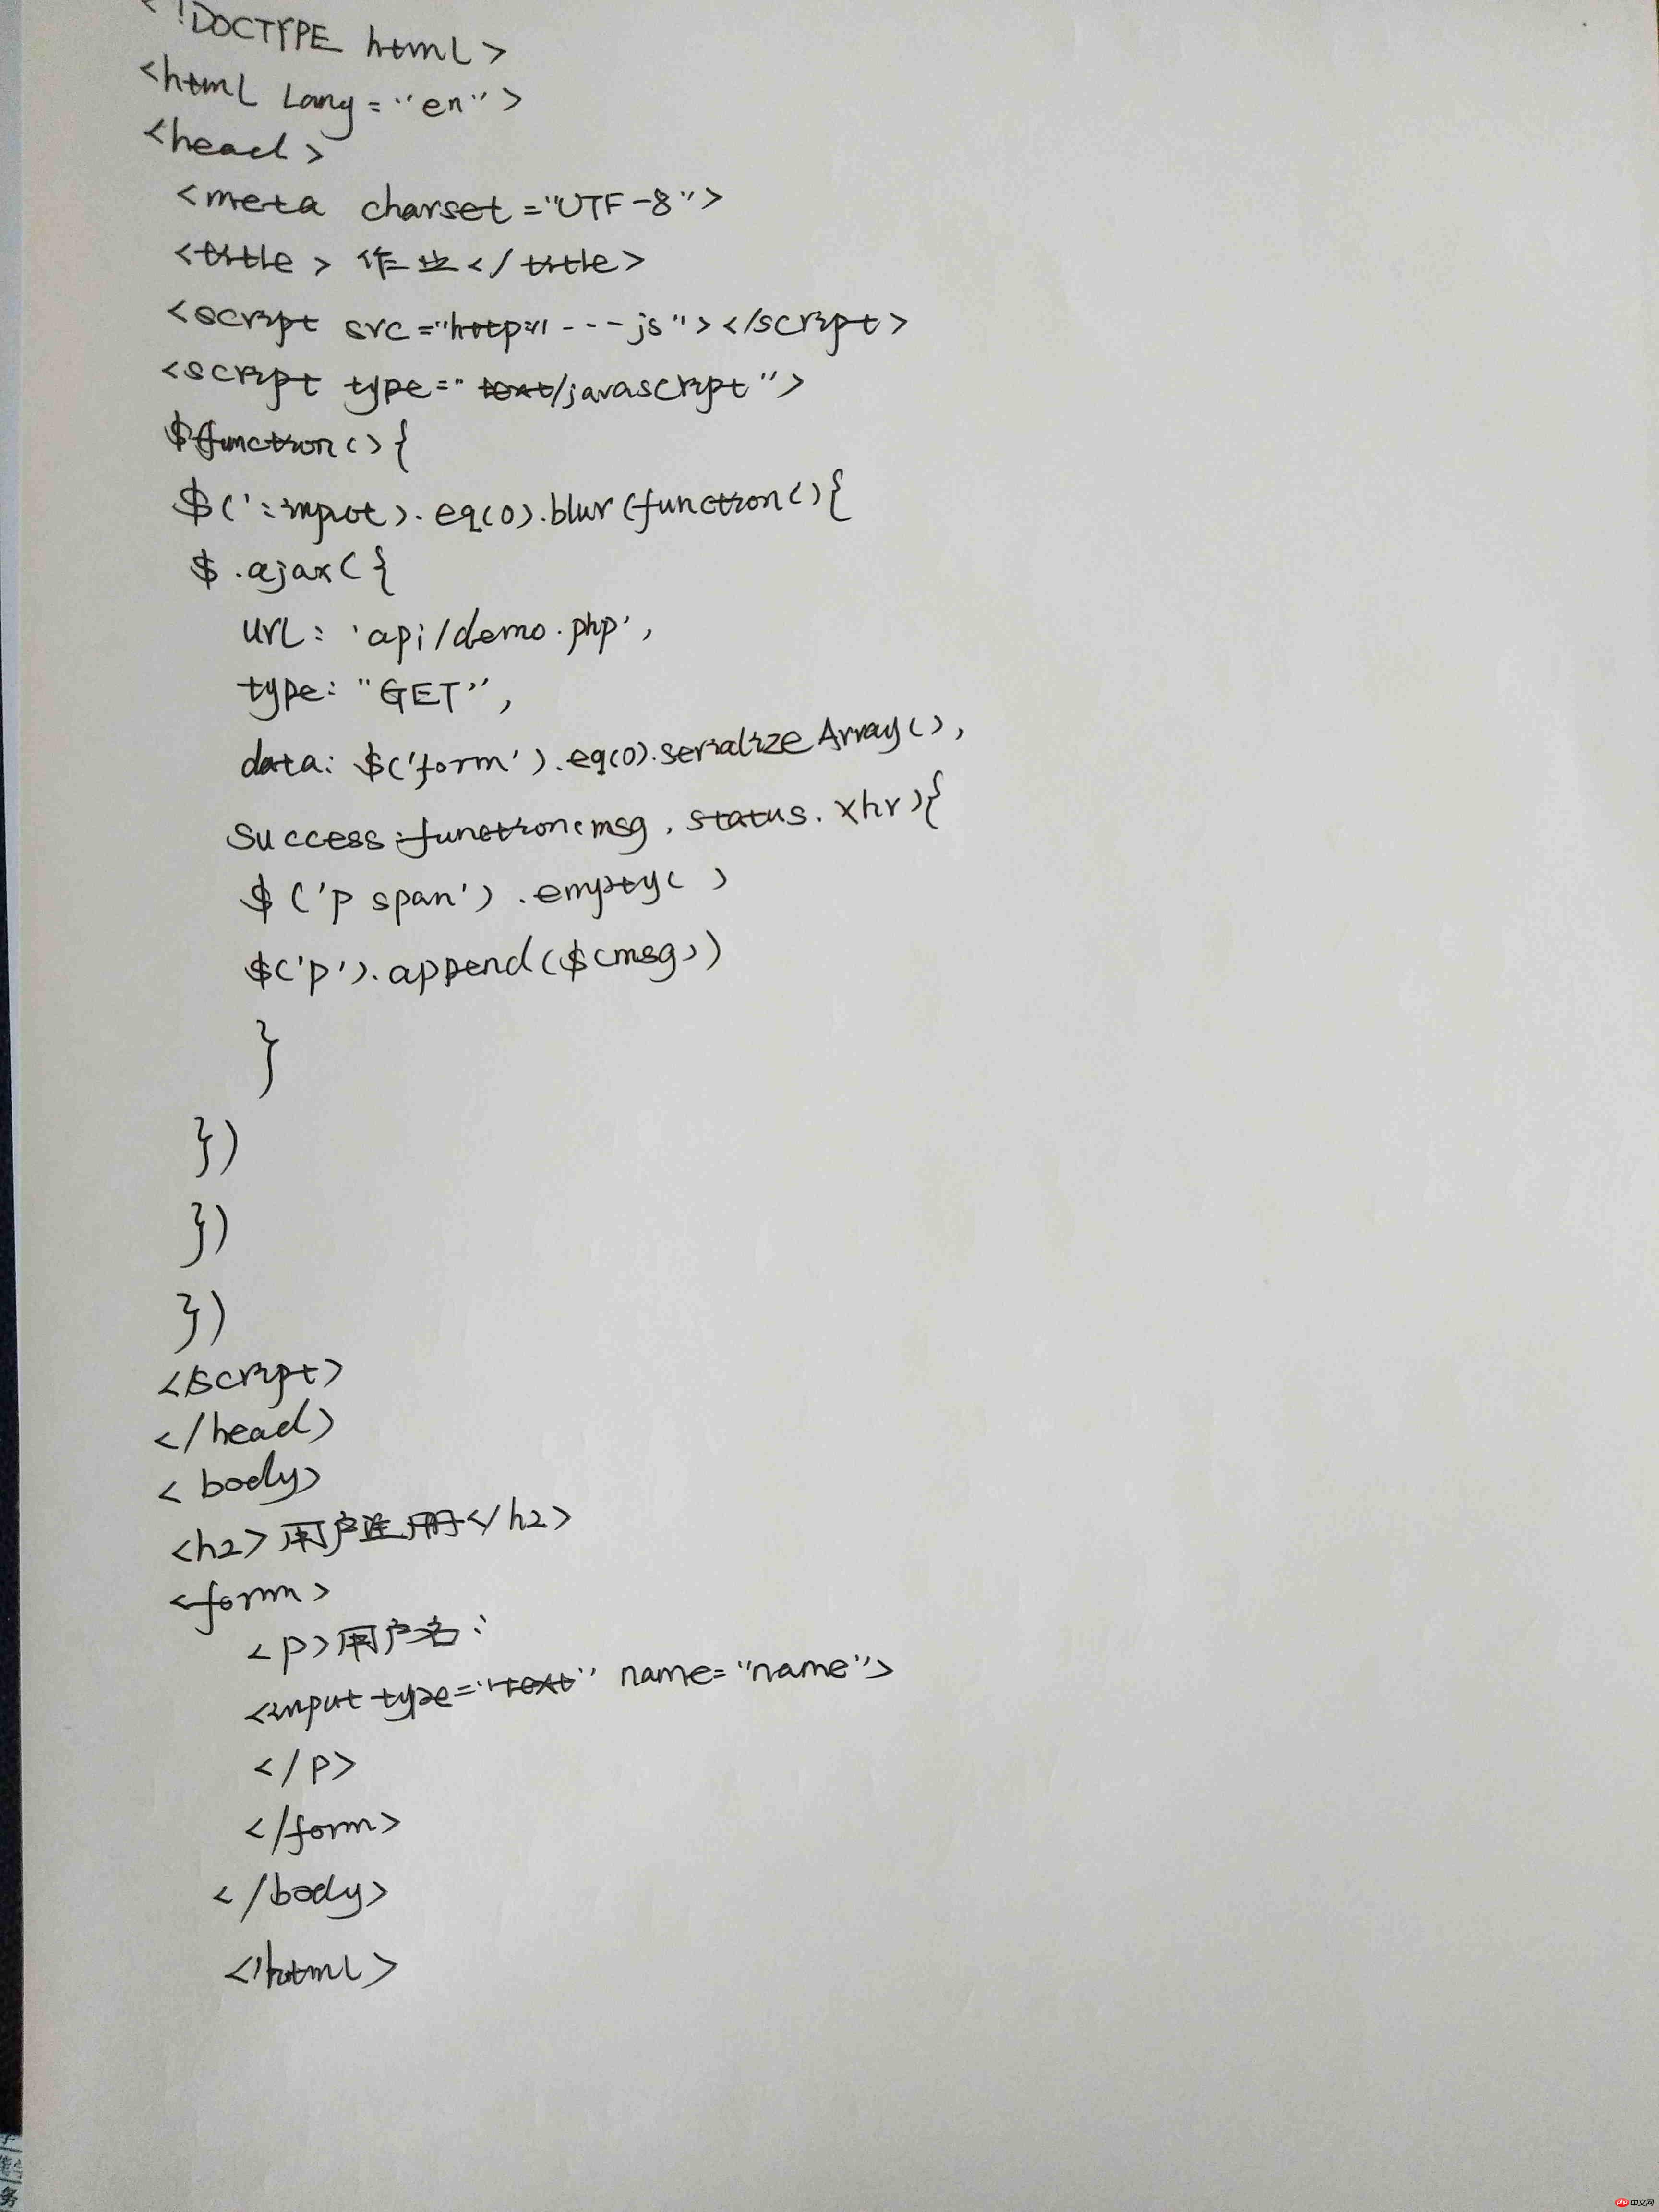 <!DOCTYPE html>
<html lang="en">
<head>
<meta charset="UTF-8">
<title>作业</title>
<script src="http:// ---js"></script>
<script type="text/javascript">
$(function(){
$(':input).eq(0).blur(function(){
$.ajax({
url: 'api/demo.php',
type: "GET",
data: $('form').eq(0).serializeArray(),
success:function(msg,status,xhr){
$('p span').empty()
$('p').append($(msg))
}
})
})
})
</script>
</head>
<body>
<h2>用户注册</h2>
<form>
<p>用户名:
<input type="text" name="name">
</p>
</form>
</body>
</html>
务
php 中文网